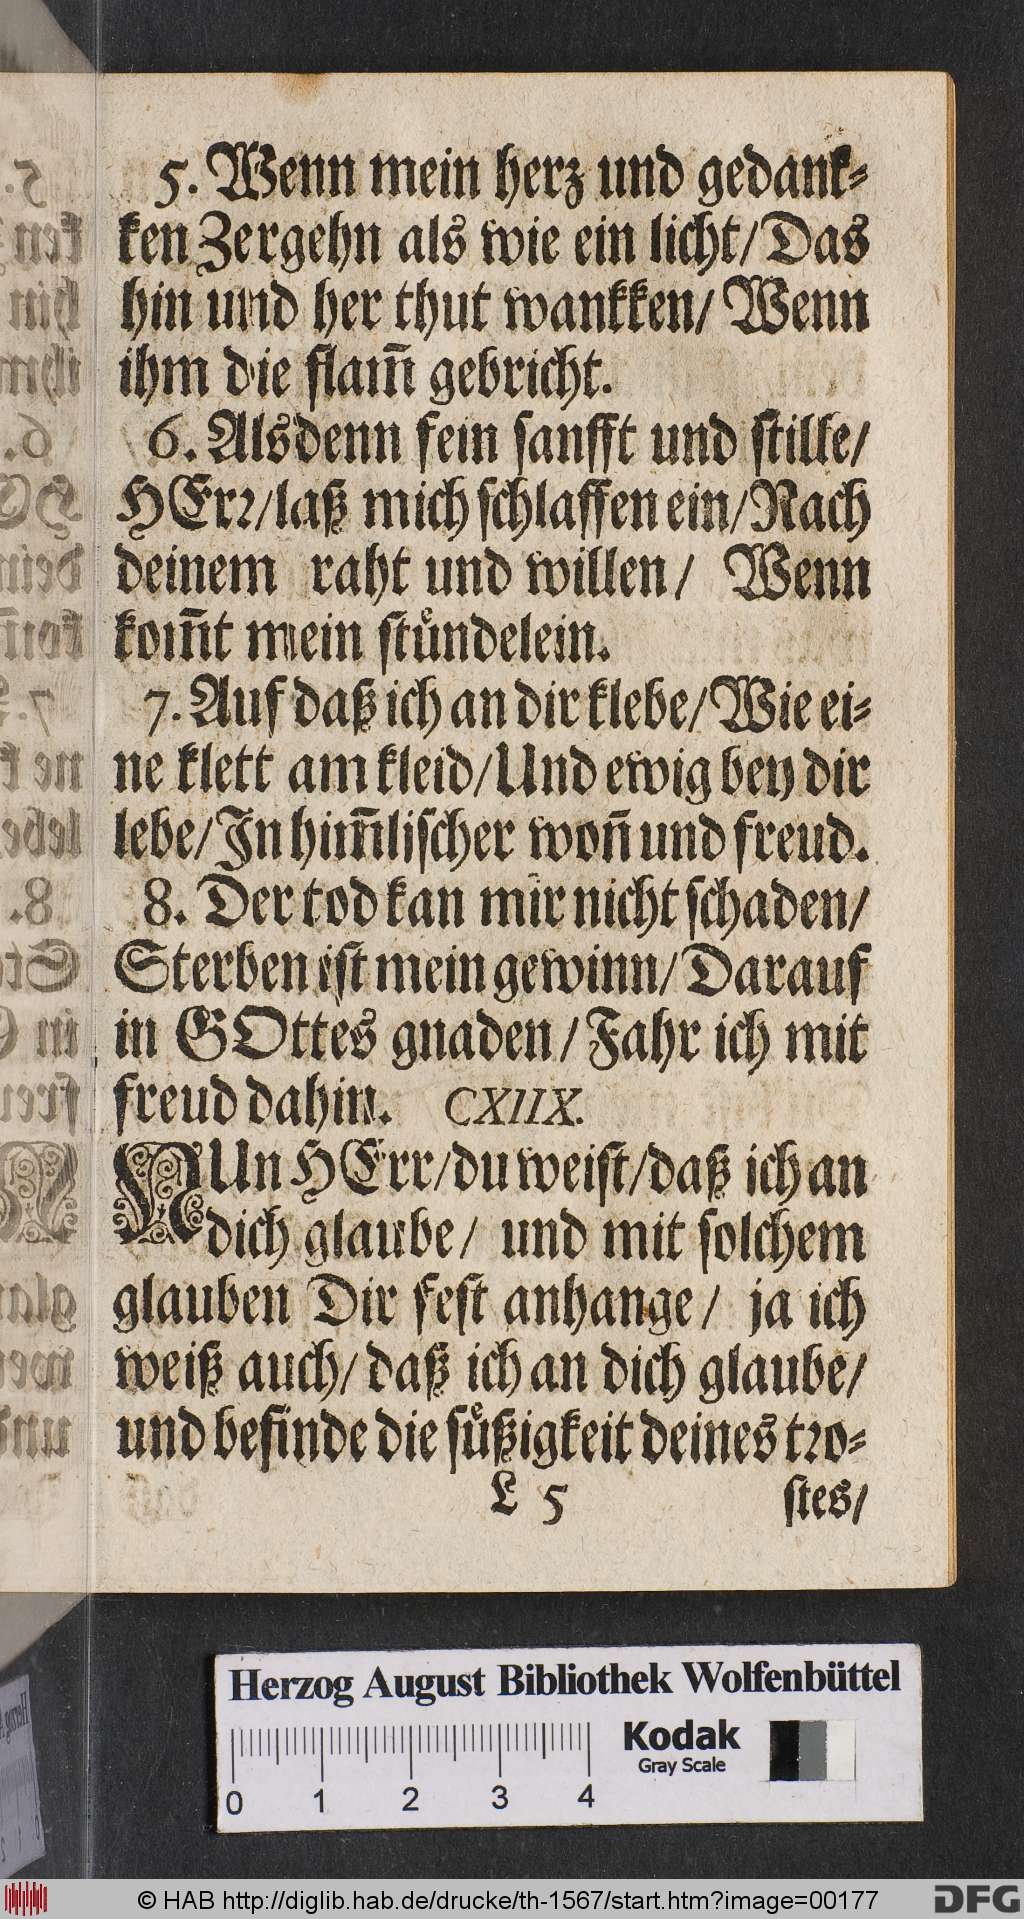 5. Wenn mein herz und gedank⸗
ken Zergehn als wie ein licht/ Das
hin und her thut wankken/ Wenn
ihm die flam̃ gebricht.
6. Alsdenn fein ſanfft und ſtille/
HErꝛ/ laß mich ſchlaffen ein/ Nach
deinem raht und willen/ Wenn
kom̃t mein ſtuͤndelein.
7. Auf daß ich an dir klebe/ Wie ei⸗
ne klett am kleid/ Und ewig bey dir
lebe/ In him̃liſcher woñ und freud.
8. Der tod kan mir nicht ſchaden/
Sterben iſt mein gewinn/ Darauf
in GOttes gnaden/ Fahr ich mit
freud dahin. CXIIX.
NUn HErr/ du weiſt/ daß ich an
dich glaube/ und mit ſolchem
glauben Dir feſt anhange/ ja ich
weiß auch/ daß ich an dich glaube/
und befinde die ſuͤßigkeit deines tꝛo⸗
L 5 ſtes/
Herzog August Bibliothek Wolfenbüttel
Kodak
Gray Scale
0 1 2 3 4
© HAB http://diglib.hab.de/drucke/th-1567/start.htm?image=00177
DFG